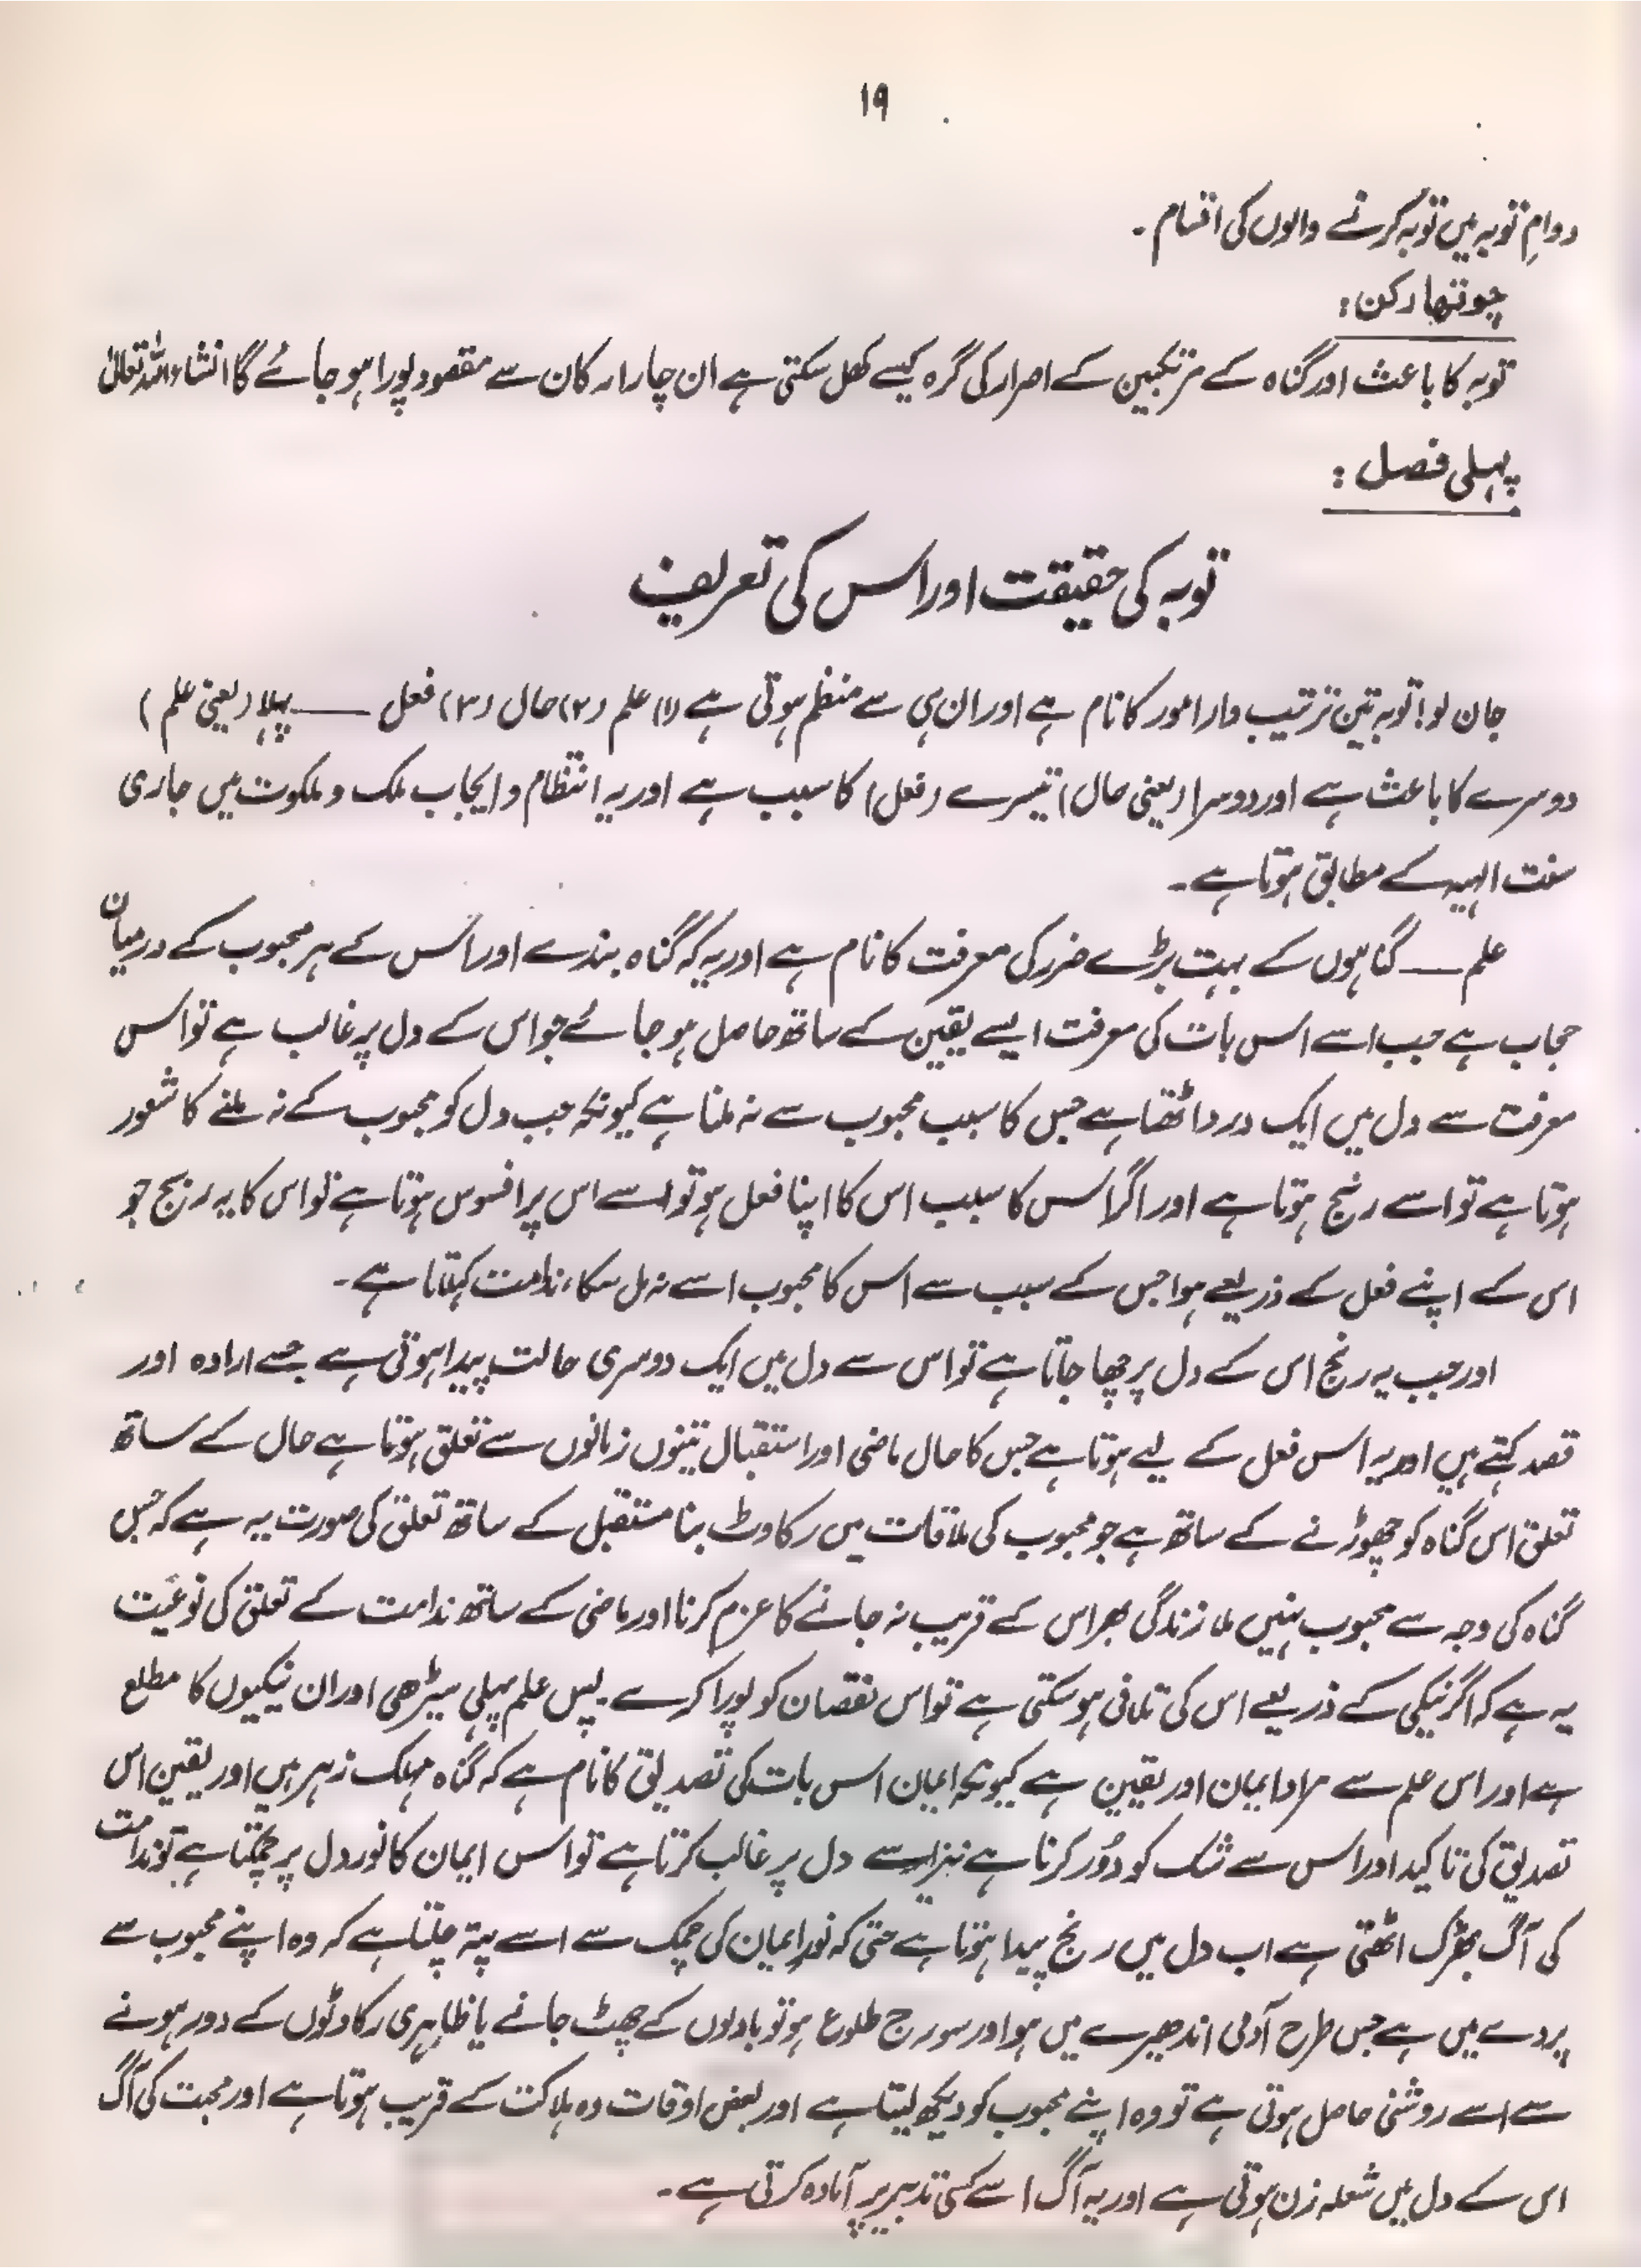 ۱۹
دوامِ توبہ میں توبہ کرنے والوں کی اقسام۔
چوتھا رکن:
توبہ کا باعث اور گناہ کے مرتکبین کے اصرار کی گرہ کیسے کھل سکتی ہے ان چار ارکان سے مقصود پورا ہو جائے گا انشاءاللہ تعالیٰ
پہلی فصل:
توبہ کی حقیقت اور اس کی تعریف
جان لو! توبہ تین ترتیب وار امور کا نام ہے اور ان ہی سے منظم ہوتی ہے (۱) علم (۲) حال (۳) فعل —— پہلا (یعنی علم)
دوسرے کا باعث ہے اور دوسرا (یعنی حال) تیسرے (فعل) کا سبب ہے اور یہ انتظام و ایجاب ملک و ملکوت میں جاری
سنت الہیہ کے مطابق ہوتا ہے۔
علم —— گناہوں کے بہت بڑے ضرر کی معرفت کا نام ہے اور یہ کہ گناہ بندے اور اس کے ہر محبوب کے درمیان
حجاب ہے جب اسے اس بات کی معرفت ایسے یقین کے ساتھ حاصل ہو جائے جو اس کے دل پر غالب ہے تو اس
معرفت سے دل میں ایک درد اٹھتا ہے جس کا سبب محبوب سے نہ ملنا ہے کیونکہ جب دل کو محبوب کے نہ ملنے کا شعور
ہوتا ہے تو اسے رنج ہوتا ہے اور اگر اس کا سبب اس کا اپنا فعل ہو تو اسے اس پر افسوس ہوتا ہے تو اس کا یہ رنج جو
اس کے اپنے فعل کے ذریعے ہوا جس کے سبب سے اس کا محبوب اسے نہ مل سکا، ندامت کہلاتا ہے۔
اور جب یہ رنج اس کے دل پر چھا جاتا ہے تو اس سے دل میں ایک دوسری حالت پیدا ہوتی ہے جسے ارادہ اور
قصد کہتے ہیں اور یہ اس فعل کے لیے ہوتا ہے جس کا حال ماضی اور استقبال تینوں زمانوں سے تعلق ہوتا ہے حال کے ساتھ
تعلق اس گناہ کو چھوڑنے کے ساتھ ہے جو محبوب کی ملاقات میں رکاوٹ بنا مستقبل کے ساتھ تعلق کی صورت یہ ہے کہ جس
گناہ کی وجہ سے محبوب نہیں ملا زندگی بھر اس کے قریب نہ جانے کا عزم کرنا اور ماضی کے ساتھ ندامت کے تعلق کی نوعیت
یہ ہے کہ اگر نیکی کے ذریعے اس کی تلافی ہو سکتی ہے تو اس نقصان کو پورا کرے۔ پس علم پہلی سیڑھی اور ان نیکیوں کا مطلع
ہے اور اس علم سے مراد ایمان اور یقین ہے کیونکہ ایمان اس بات کی تصدیق کا نام ہے کہ گناہ مہلک زہر ہیں اور یقین اس
تصدیق کی تاکید اور اس سے شک کو دُور کرنا ہے نیز اسے دل پر غالب کرتا ہے تو اس ایمان کا نور دل پر چمکتا ہے تو ندامت
کی آگ بھڑک اٹھتی ہے اب دل میں رنج پیدا ہوتا ہے حتی کہ نورِ ایمان کی چمک سے اسے پتہ چلتا ہے کہ وہ اپنے محبوب سے
پردے میں ہے جس طرح آدمی اندھیرے میں ہو اور سورج طلوع ہو تو بادلوں کے چھٹ جانے یا ظاہری رکاوٹوں کے دور ہونے
سے اسے روشنی حاصل ہوتی ہے تو وہ اپنے محبوب کو دیکھ لیتا ہے اور بعض اوقات وہ ہلاکت کے قریب ہوتا ہے اور محبت کی آگ
اس کے دل میں شعلہ زن ہوتی ہے اور یہ آگ اسے کسی تدبیر پر آمادہ کرتی ہے۔